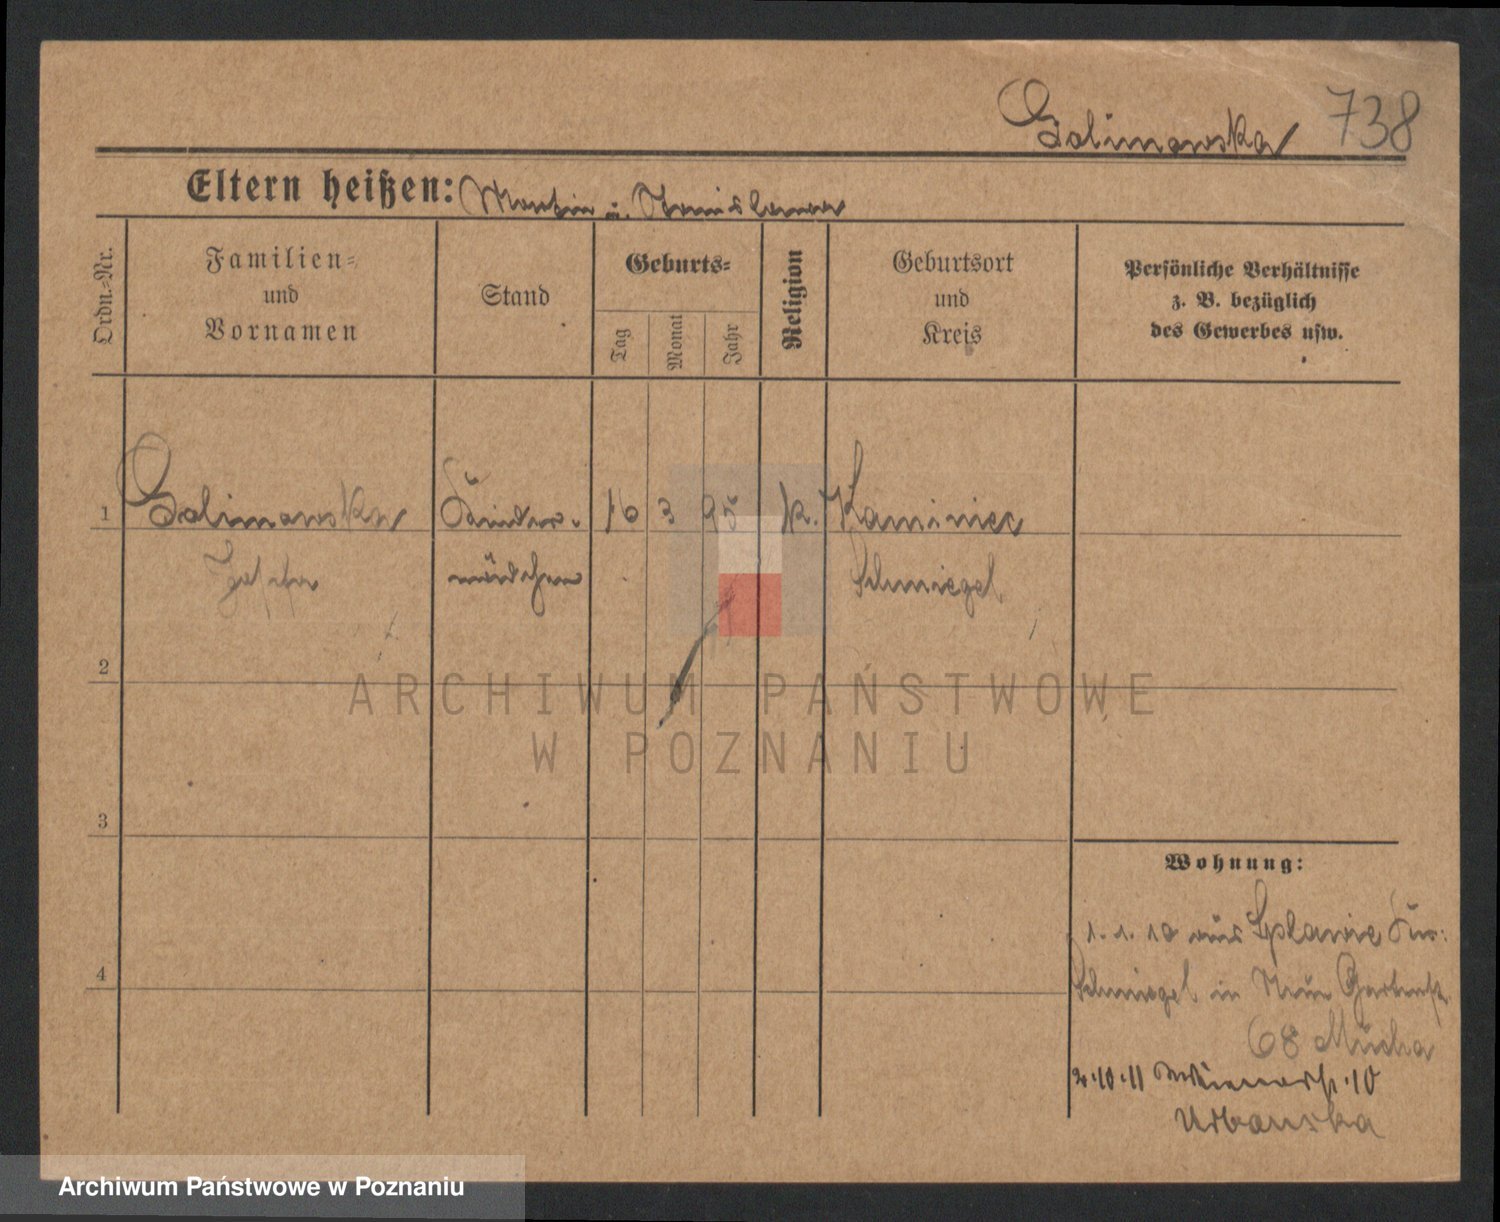 Galinowska 738
Eltern heißen: Martin u. Stanislawa
Ordn.-Nr.
Familien-
und
Vornamen
Stand
Geburts-
Tag
Monat
Jahr
Religion
Geburtsort
und
Kreis
Persönliche Verhältnisse
z. B. bezüglich
des Gewerbes usw.
1 Galinowska Kinder- 16 3 95 k. Kaminiec
mädchen Schmiegel
2
ARCHIWUM PAŃSTWOWE
W POZNANIU
3
Wohnung:
1. 1. 10 aus
4
Schmiegel in Neue Gartenstr.
68 Mucha
2.10.11 Wienerstr. 10
Urbanska
Archiwum Państwowe w Poznaniu